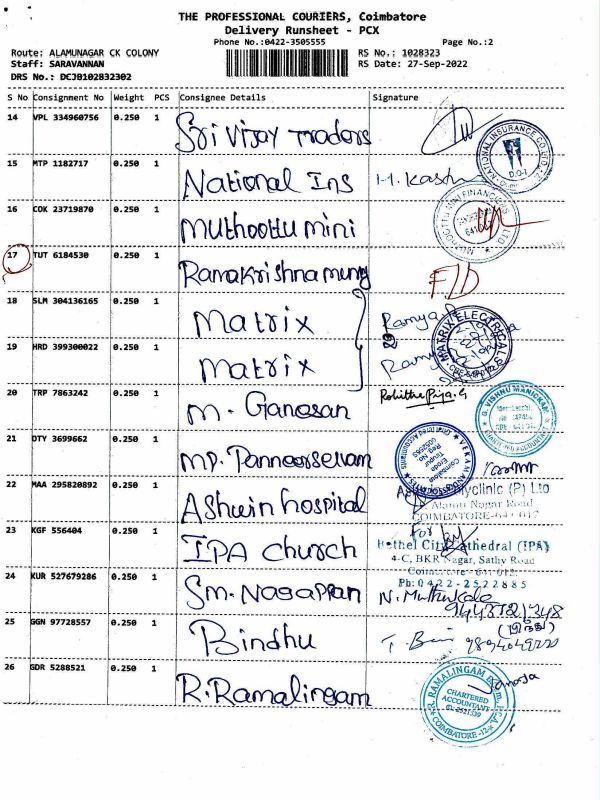 THE PROFESSIONAL COURIERS, Coimbatore
Delivery Runsheet - PCX
Phone No.:0422-3505555 Page No.:2
Route: ALAMUNAGAR CK COLONY RS No.: 1028323
Staff: SARAVANNAN RS Date: 27-Sep-2022
DRS No.: DCJB102832302
S No Consignment No Weight PCS Consignee Details Signature
14 VPL 334960756 0.250 1 Sri Vijay Traders
15 MTP 1182717 0.250 1 National Ins
16 COK 23719870 0.250 1 Muthoottu mini
17 TUT 6184530 0.250 1 Ramakrishna F/D
18 SLM 304136165 0.250 1 Matrix Ramya
MATRIX ELECTRICALS
19 HRD 399300022 0.250 1 Matrix Ramya
20 TRP 7863242 0.250 1 M. Ganasan
21 DTY 3699662 0.250 1 MP. Panneerselvam
22 MAA 295820892 1 Ashwin hospital Polyclinic (P) Ltd
Alamu Nagar Road
COIMBATORE-641 017
For
23 KGF 556404 0.250 1 IPA church Bethel City Cathedral (IPA)
4-C, BKR Nagar, Sathy Road
Coimbatore - 641 012.
Ph: 0422-2522885
24 KUR 527679286 0.250 1 Sm. Nagappan
25 GGN 97728557 0.250 1 Bindhu
26 GDR 5288521 0.250 1 R. Ramalingam
R. RAMALINGAM
CHARTERED
ACCOUNTANT
COIMBATORE-12